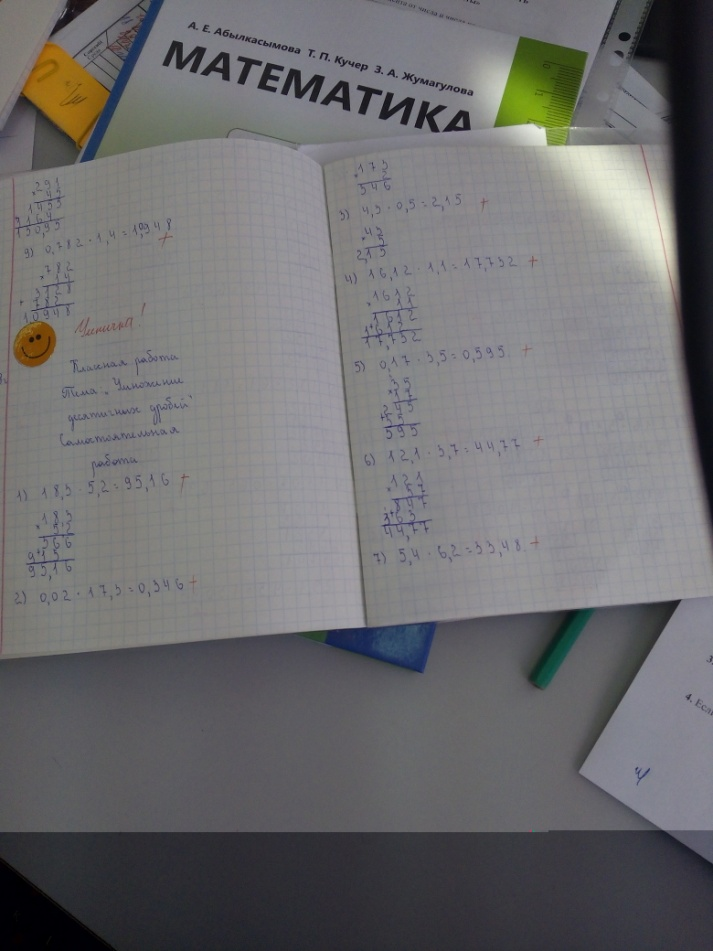 А. Е. Абылкасымова Т. П. Кучер З. А. Жумагулова
МАТЕМАТИКА
291
15095
9) 0,782 · 1,4 = 1,0948 +
×782
14
3128
782
1,0948
Умничка!
Классная работа
Тема „Умножение
десятичных дробей"
Самостоятельная
работа
1) 18,3 · 5,2 = 95,16 +
×183
52
366
915
95,16
2) 0,02 · 17,3 = 0,346 +
×173
2
346
3) 4,3 · 0,5 = 2,15 +
×43
5
2,15
4) 16,12 · 1,1 = 17,732 +
×1612
11
1612
1612
17,732
5) 0,17 · 3,5 = 0,595 +
595
6) 12,1 · 3,7 = 44,77 +
×121
37
847
363
44,77
7) 5,4 · 6,2 = 33,48 +
3.
4. Если